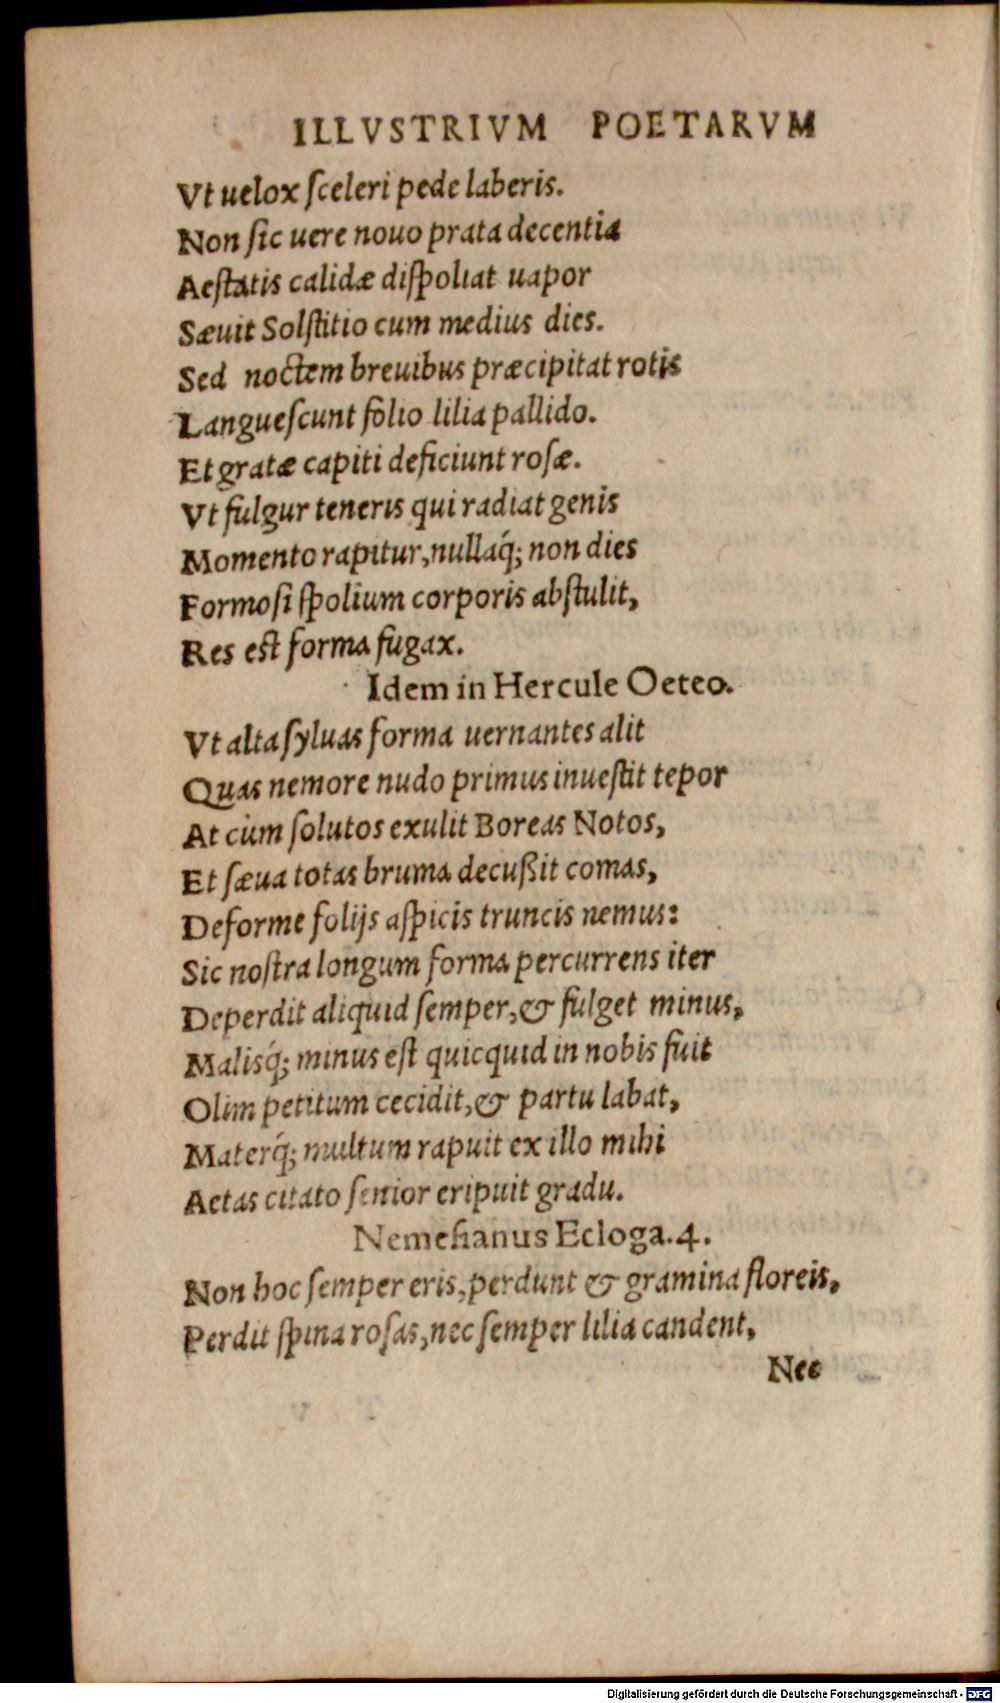 ILLVSTRIVM POETARVM
Vt uelox ſceleri pede laberis.
Non ſic uere nouo prata decentia
Aeſtatis calidæ diſpoliat uapor
Sæuit Solſtitio cum medius dies.
Sed noctem breuibus præcipitat rotis
Langueſcunt folio lilia pallido.
Et gratæ capiti deficiunt roſæ.
Vt fulgur teneris qui radiat genis
Momento rapitur, nullaq́; non dies
Formoſi ſpolium corporis abſtulit,
Res eſt forma fugax.
Idem in Hercule Oeteo.
Vt alta ſyluas forma uernantes alit
Quas nemore nudo primus inueſtit tepor
At cùm ſolutos exulit Boreas Notos,
Et ſæua totas bruma decußit comas,
Deforme folijs aſpicis truncis nemus:
Sic noſtra longum forma percurrens iter
Deperdit aliquid ſemper, & fulget minus,
Malisq́; minus eſt quicquid in nobis fuit
Olim petitum cecidit, & partu labat,
Materq́; multum rapuit ex illo mihi
Aetas citato ſenior eripuit gradu.
Nemeſianus Ecloga. 4.
Non hoc ſemper eris, perdunt & gramina floreis,
Perdit ſpina roſas, nec ſemper lilia candent,
Nec
Digitalisierung gefördert durch die Deutsche Forschungsgemeinschaft - DFG